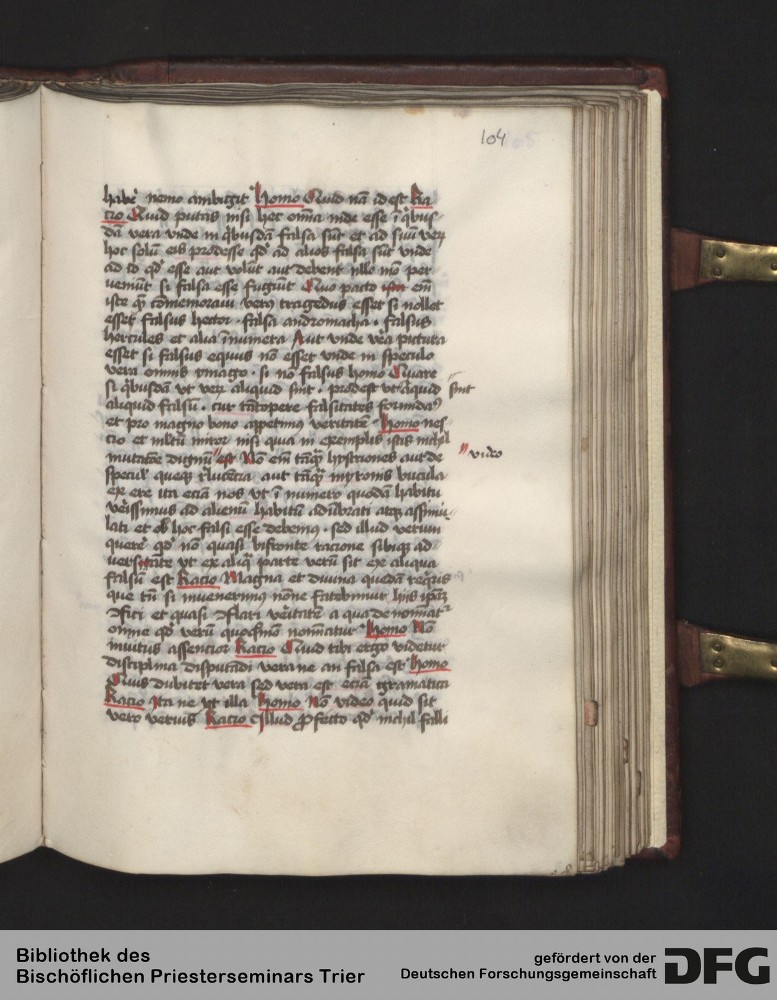 104
habe͂ nemo ambigit Homo Quid nā id est Ra
cio Quid putas nisi hec om̄ia inde esse ī q̇bus
dā vera vnde in q̇busdā falsa sūt et ad suū verū
hoc solū eis prodesse qd̓ ad aliud falsa sūt vnde
ad id qd̓ esse aut volūt aut debent nllo mō per
veniūt si falsa esse fugiūt Quo pacto em̄
iste q̄ cōmemoraui verꝰ tragedus esset si nollet
esset falsus hector · falsa andromacha · falsus
hercules et alia īnumera Aut vnde vēa pictura
esset si falsus equus nō esset vnde in speculo
vera omnis ymago · si nō falsus homo Quare
si q̇busdā vt verū aliquid sint · prodest vt aliquid sint
aliquid falsū · cur tātopere falsitates formidamꝰ
et pro magno bono appetimꝰ veritatē Homo nes
cio et mltū miror nisi quia in exemplis istis nichil
imitatōe dignū est Nō em̄ tāq̄ hystriones aut de video
specul' quęq̄ rlucēcia aut tāq̄ myronis bucula
ex ere ita eciā nos vt ī numero quodā habitu
vēissimus ad alienū habitū adūbrati atqꝫ assimu
lati et ob hoc falsi esse debemꝰ · sed illud verum
quere͂ qd̓ nō quasi bifronte racione sibiqꝫ ad
uersitate vt ex aliq̄ parte verū sit ex aliqua
falsū est Racio Magna et diuina quedā reqͥris
que tn̄ si inuenerimꝰ nōne fatebimur hiis ipām
ɔfici et quasi ɔflari vēitatē a qua de nominat͂
omne qd̓ verū quoq̄mō nomīatur Homo Nō
inuitus assencior Racio Quid tibi ergo videtur
disciplina disputādi vera ne an falsa est Homo
Quis dubitet vera sed vera est eciā gramatica
Racio Ita ne vt illa Homo Nō video quid sit
vero verius Racio Illud ꝓfecto qd̓ nichil falsi
Bibliothek des
Bischöflichen Priesterseminars Trier
gefördert von der
Deutschen Forschungsgemeinschaft
DFG